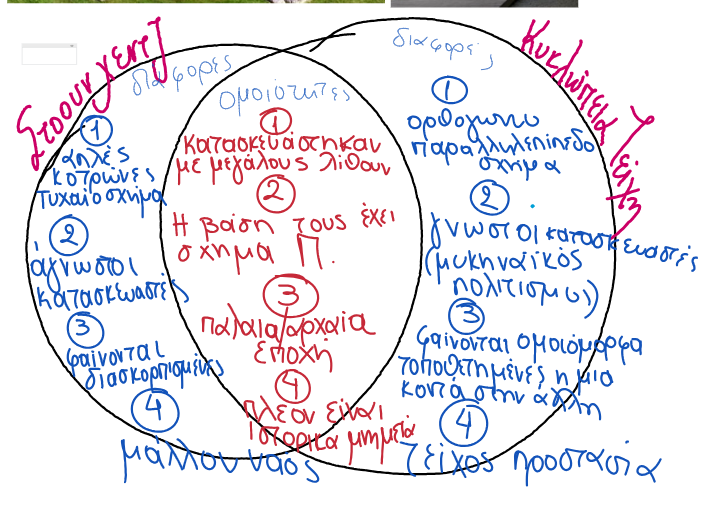 Στοουνχεντζ
διαφορές
1
ψηλές
κοτρώνες
τυχαίο σχήμα
2
άγνωστοι
κατασκευαστές
3
φαίνονται
διασκορπισμένες
4
μάλλον ναος
ομοιότητες
1
κατασκευάστηκαν
με μεγάλους λίθους
2
Η βάση τους έχει
σχήμα Π.
3
παλαιά/αρχαία
εποχή
4
πλέον είναι
ιστορικα μνημεία
Κυκλώπεια Τείχη
διαφορές
1
ορθογωνιο
παραλληλεπίπεδο
σχήμα
2
γνωστοι κατασκευαστές
(μυκηναϊκός
πολιτισμος)
3
φαίνονται ομοιόμορφα
τοποθετημένες η μια
κοντά στην αλλη
4
τείχος προστασία